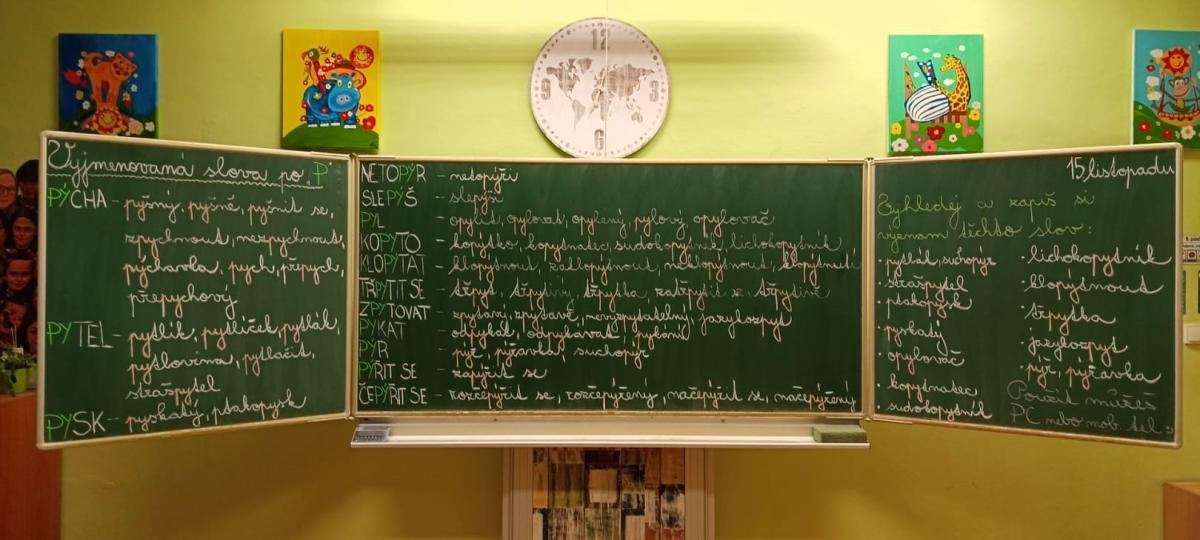 12
3
6
9
Vyjmenovaná slova po P
PÝCHA - pyšný, pyšně, pyšnit se,
zpychnout, nezpychnout,
pýchavka, pych, přepych,
přepychový
PYTEL - pytlík, pytlíček, pytlák,
pytlovina, pytlačit,
strašpytel
PYSK - pyskatý, ptakopysk
NETOPÝR - netopýři
SLEPÝŠ - slepýši
PYL - opylit, opylovat, opylený, pylový, opylovač
KOPYTO - kopýtko, kopytnatec, sudokopytník, lichokopytník
KLOPÝTAT - klopýtnout, zaklopýtnout, neklopýtnout, klopýtnutí
TŘPYTIT SE - třpyt, třpytivý, třpytka, zatřpytit se, třpytivě
ZPYTOVAT - zpytavý, zpytavě, nevyzpytatelný, jazykozpyt
PYKAT - odpykat, odpykávat, pykání
PÝR - pýr, pýřavka, suchopýr
PÝŘIT SE - zapýřit se
ČEPÝŘIT SE - rozčepýřit se, rozčepýřený, načepýřit se, načepýřený
15. listopadu
Vyhledej a zapiš si
význam těchto slov:
• pytlák, suchopýr
• strašpytel
• ptakopysk
• pyskatý
• opylovač
• kopytnatec
sudokopytník
• lichokopytník
• klopýtnout
• třpytka
• jazykozpyt
• pýr, pýřavka
Použít můžeš
PC nebo mob. tel :)